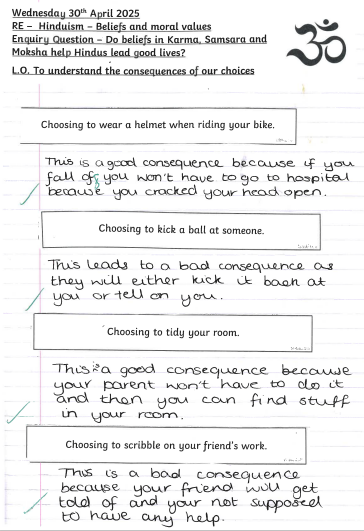 Wednesday 30th April 2025
RE – Hinduism – Beliefs and moral values
Enquiry Question – Do beliefs in Karma, Samsara and
Moksha help Hindus lead good lives?
ॐ
L.O. To understand the consequences of our choices
Choosing to wear a helmet when riding your bike.
This is a good consequence because if you
fall off you won't have to go to hospital
because you cracked your head open.
Choosing to kick a ball at someone.
This leads to a bad consequence as
they will either kick it back at
you or tell on you.
Choosing to tidy your room.
This is a good consequence because
your parent won't have to do it
and then you can find stuff
in your room.
Choosing to scribble on your friend's work.
This is a bad consequence
because your friend will get
told of and your not supposed
to have any help.